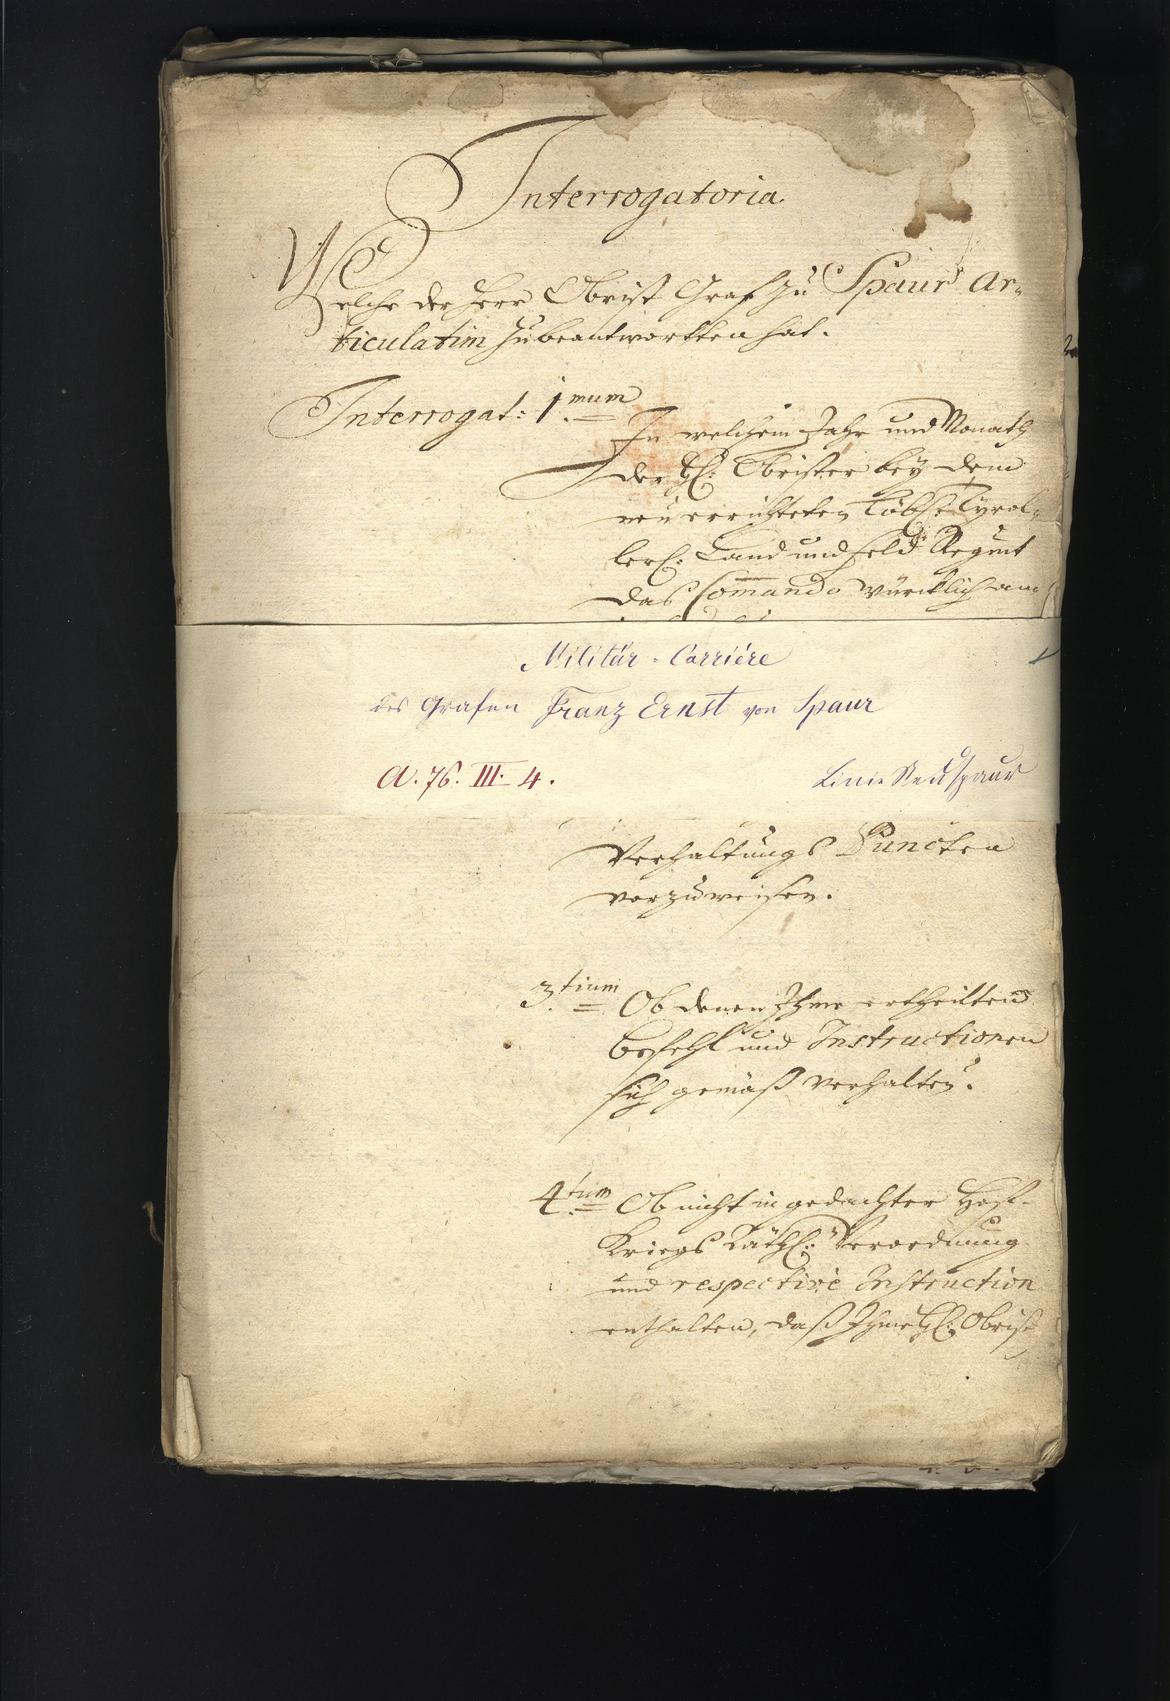 Interrogatoria
Welche der Herr Obrist Graf zu Spaur Ar=
ticulatim zu beantwortten hat.
Interrogat: 1mum
In welchem Jahr und Monath
der H: Obrister bey dem
neu errichteten Löbl: Tyrol=
ler: Land und Feld Regmt
das Commando würcklich an
Militär-Carriére
des Grafen Franz Ernst von Spaur
A. 76. III. 4.
Linie Neuspaur
Verhaltungs Puncten
vorzuweisen.
3tium Ob denen Ihme ertheilten
Befehl und Instructionen
sich gemäß verhalten.
4tum Ob nicht in gedachter Hof-
Kriegs Räthl: Verordnung
und respective Instruction
enthalten, daß Ihme H: Obrist